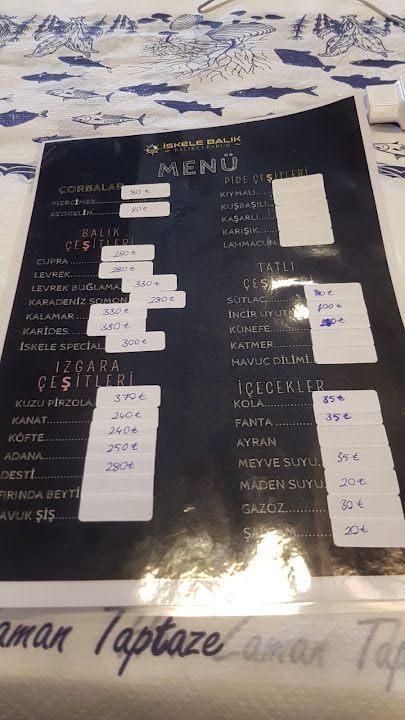 İSKELE BALIK
MENÜ
ÇORBALAR
MERCİMEK 80 ₺
EZOGELİN 80 ₺
BALIK ÇEŞİTLERİ
ÇUPRA 280 ₺
LEVREK 280 ₺
LEVREK BUĞLAMA 330 ₺
KARADENİZ SOMON 280 ₺
KALAMAR 330 ₺
KARİDES 330 ₺
İSKELE SPECIAL 300 ₺
IZGARA ÇEŞİTLERİ
KUZU PİRZOLA 370 ₺
KANAT 240 ₺
KÖFTE 240 ₺
ADANA 250 ₺
DESTİ 280 ₺
FIRINDA BEYTİ
AVUK ŞİŞ
PİDE ÇEŞİTLERİ
KIYMALI
KUŞBAŞILI
KAŞARLI
KARIŞIK
LAHMACUN
TATLI ÇEŞİTLERİ
SÜTLAÇ
İNCİR UYUTMA 100 ₺
KÜNEFE
KATMER
HAVUÇ DİLİMİ
İÇECEKLER
KOLA 35 ₺
FANTA 35 ₺
AYRAN
MEYVE SUYU 35 ₺
MADEN SUYU 20 ₺
GAZOZ 30 ₺
20 ₺
aman Taptaze
Zaman Tap